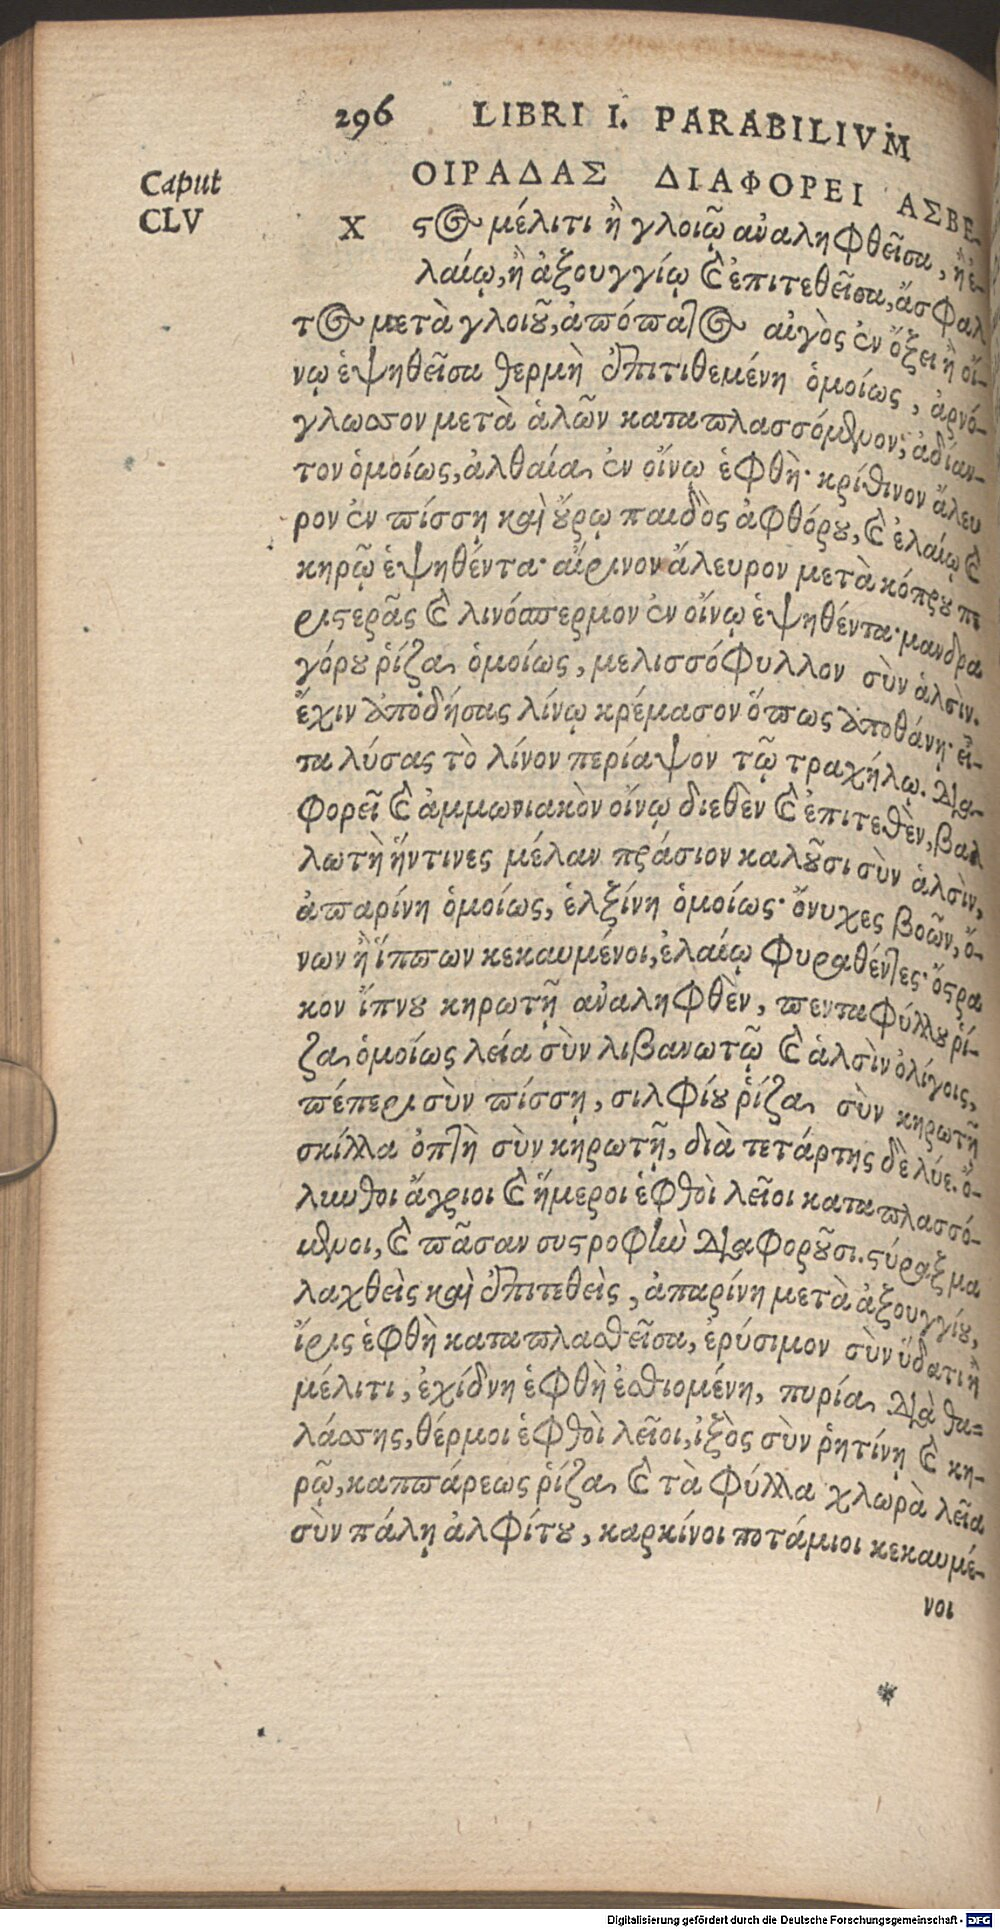 296 LIBRI I. PARABILIVM
Caput
CLV
Χ ΟΙΡΑΔΑΣ ΔΙΑΦΟΡΕΙ ΑΣΒΕ-
στος μέλιτι ἢ γλοιῷ ἀναληφθεῖσα, ἢ ἐ-
λαίῳ, ἢ ἀξουγγίῳ καὶ ἐπιτεθεῖσα, ἄσφαλ
τος μετὰ γλοιοῦ, ἀπόπατος αἰγὸς ἐν ὄξει ἢ οἴ-
νῳ ἑψηθεῖσα θερμὴ ἐπιτιθεμένη ὁμοίως, ἀρνό-
γλωσσον μετὰ ἁλῶν καταπλασσόμενον, ἀδίαν-
τον ὁμοίως, ἀλθαία ἐν οἴνῳ ἑφθὴ· κρίθινον ἄλευ
ρον ἐν πίσσῃ καὶ οὔρῳ παιδὸς ἀφθόρου, καὶ ἐλαίῳ καὶ
κηρῷ ἑψηθέντα· αἴρινον ἄλευρον μετὰ κόπρου πε
ριστερᾶς καὶ λινόσπερμον ἐν οἴνῳ ἑψηθέντα· μανδρα
γόρου ῥίζα ὁμοίως, μελισσόφυλλον σὺν ἁλσίν.
ἔχιν ἀποδήσας λίνῳ κρέμασον ὅπως ἀποθάνῃ· εἶ-
τα λύσας τὸ λίνον περίαψον τῷ τραχήλῳ. Δια-
φορεῖ καὶ ἀμμωνιακὸν οἴνῳ διεθὲν καὶ ἐπιτεθὲν, βαλ
λωτὴ ἥντινες μέλαν πράσιον καλοῦσι σὺν ἁλσὶν,
ἀπαρίνη ὁμοίως, ἑλξίνη ὁμοίως· ὄνυχες βοῶν, ὄ-
νων ἢ ἵππων κεκαυμένοι, ἐλαίῳ φυραθέντες· ὄστρα
κον ἴπνου κηρωτῇ ἀναληφθὲν, πενταφύλλου ῥί-
ζα ὁμοίως λεία σὺν λιβανωτῷ καὶ ἁλσὶν ὀλίγοις,
πέπερι σὺν πίσσῃ, σιλφίου ῥίζα σὺν κηρωτῇ
σκίλλα ὀπτὴ σὺν κηρωτῇ, διὰ τετάρτης δὲ λύε. ὄ-
λυνθοι ἄγριοι καὶ ἥμεροι ἑφθοὶ λεῖοι καταπλασσό-
μενοι, καὶ πᾶσαν συστροφὴν διαφοροῦσι. στύραξ μα
λαχθεὶς καὶ ἐπιτεθεὶς, ἀπαρίνη μετὰ ἀξουγγίου,
ἴρις ἑφθὴ καταπλασθεῖσα, ἐρύσιμον σὺν ὕδατι ἢ
μέλιτι, ἐχίδνη ἑφθὴ ἐσθιομένη, πυρία διὰ θα-
λάσσης, θέρμοι ἑφθοὶ λεῖοι, ἰξὸς σὺν ῥητίνῃ καὶ κη-
ρῷ, καππάρεως ῥίζα καὶ τὰ φύλλα χλωρὰ λεῖα
σὺν πάλῃ ἀλφίτου, καρκίνοι ποτάμιοι κεκαυμέ-
νοι
Digitalisierung gefördert durch die Deutsche Forschungsgemeinschaft - DFG